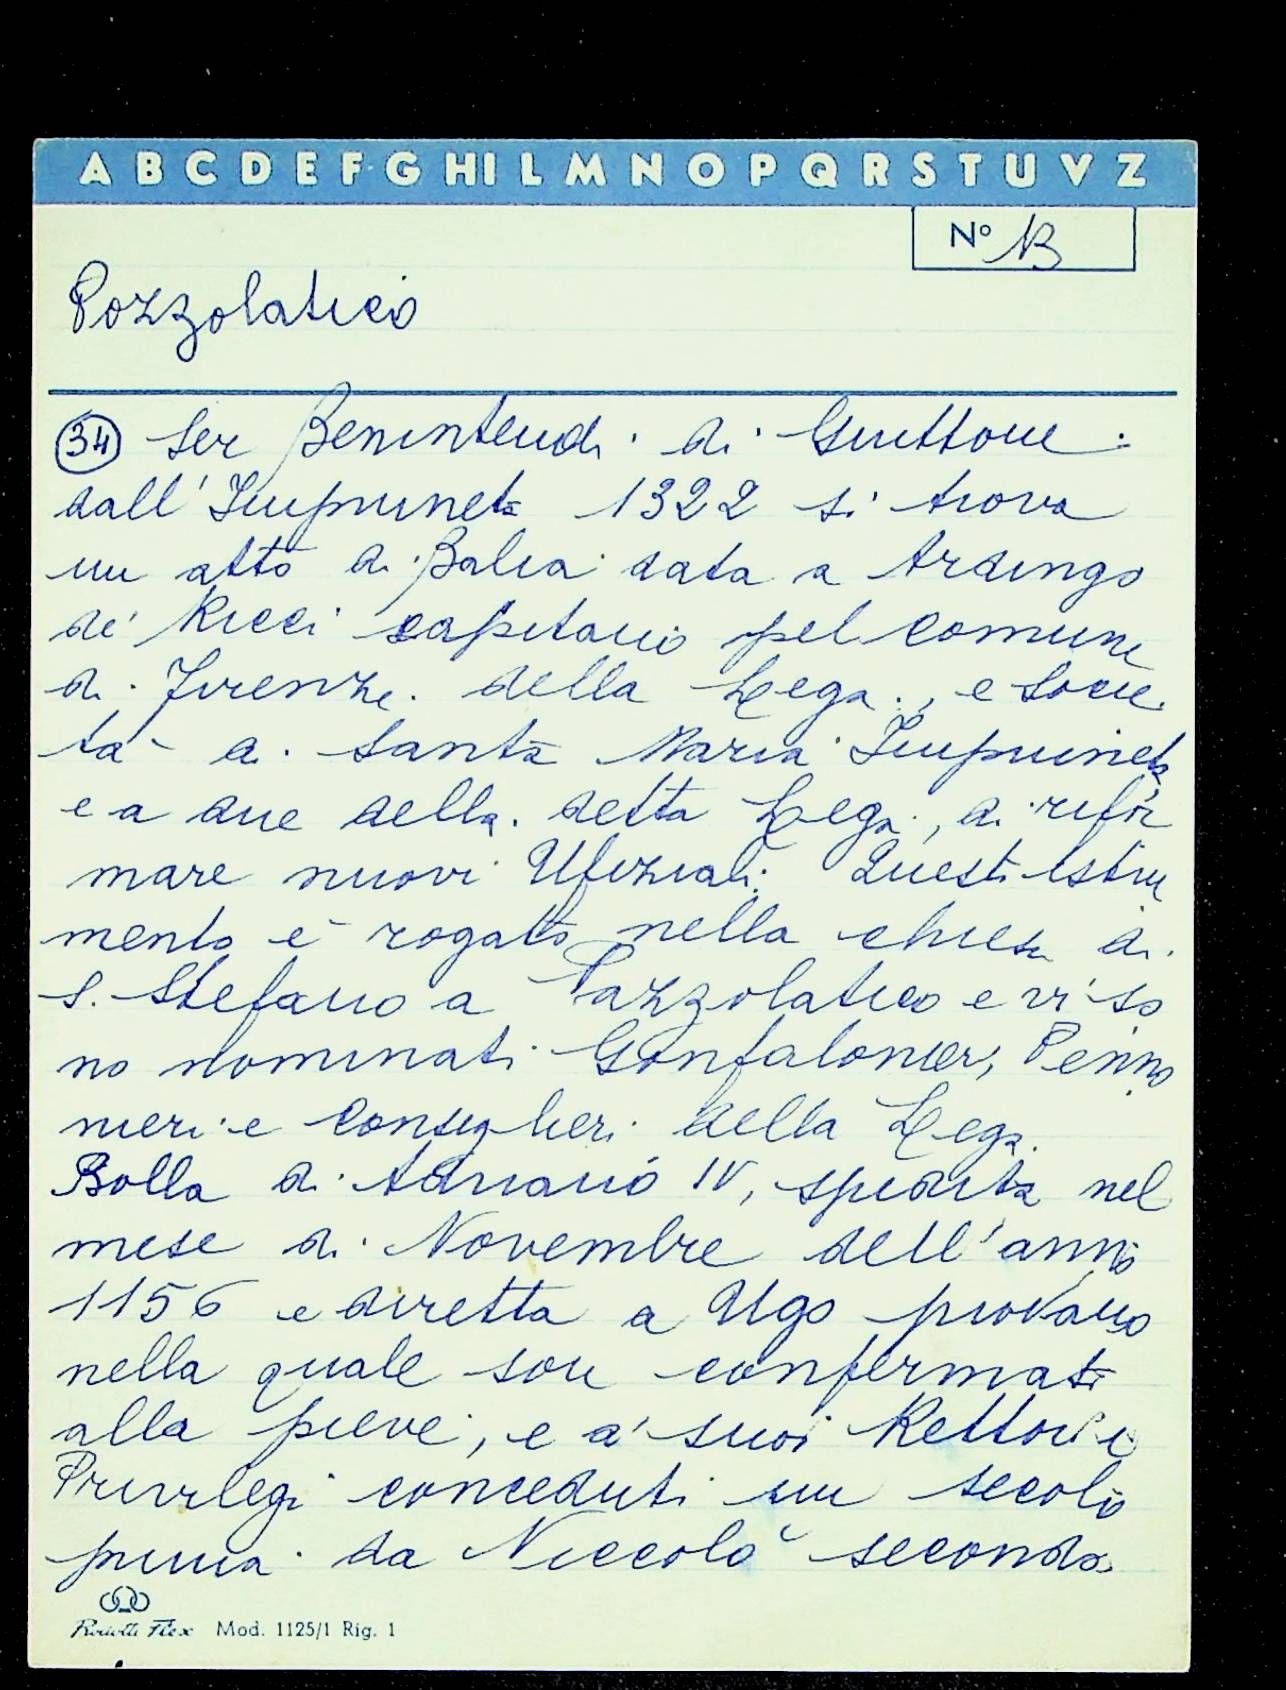 A B C D E F G H I L M N O P Q R S T U V Z
Nº 13
Pozzolatico
34 Ser Benintendi di Guittone
dall'Impruneta 1322 si trova
un atto di Balia data a Ardingo
de' Ricci capitano pel comune
di Firenze della Lega, e Socie
tà di Santa Maria Impruneta
e a due della detta Lega, di rifor
mare nuovi Ufiziali. Questi istru
mento è rogato nella chiesa di
S. Stefano a Pazzolatico e vi so
no nominati Gonfalonieri, Penno
nieri e Consiglieri della Lega.
Bolla di Adriano IV, spedita nel
mese di Novembre dell'anno
1156 e diretta a Ugo piovano
nella quale son confermati
alla pieve, e a' suoi Rettori i
Privilegi conceduti un secolo
prima da Niccolò secondo
Mod. 1125/1 Rig. 1